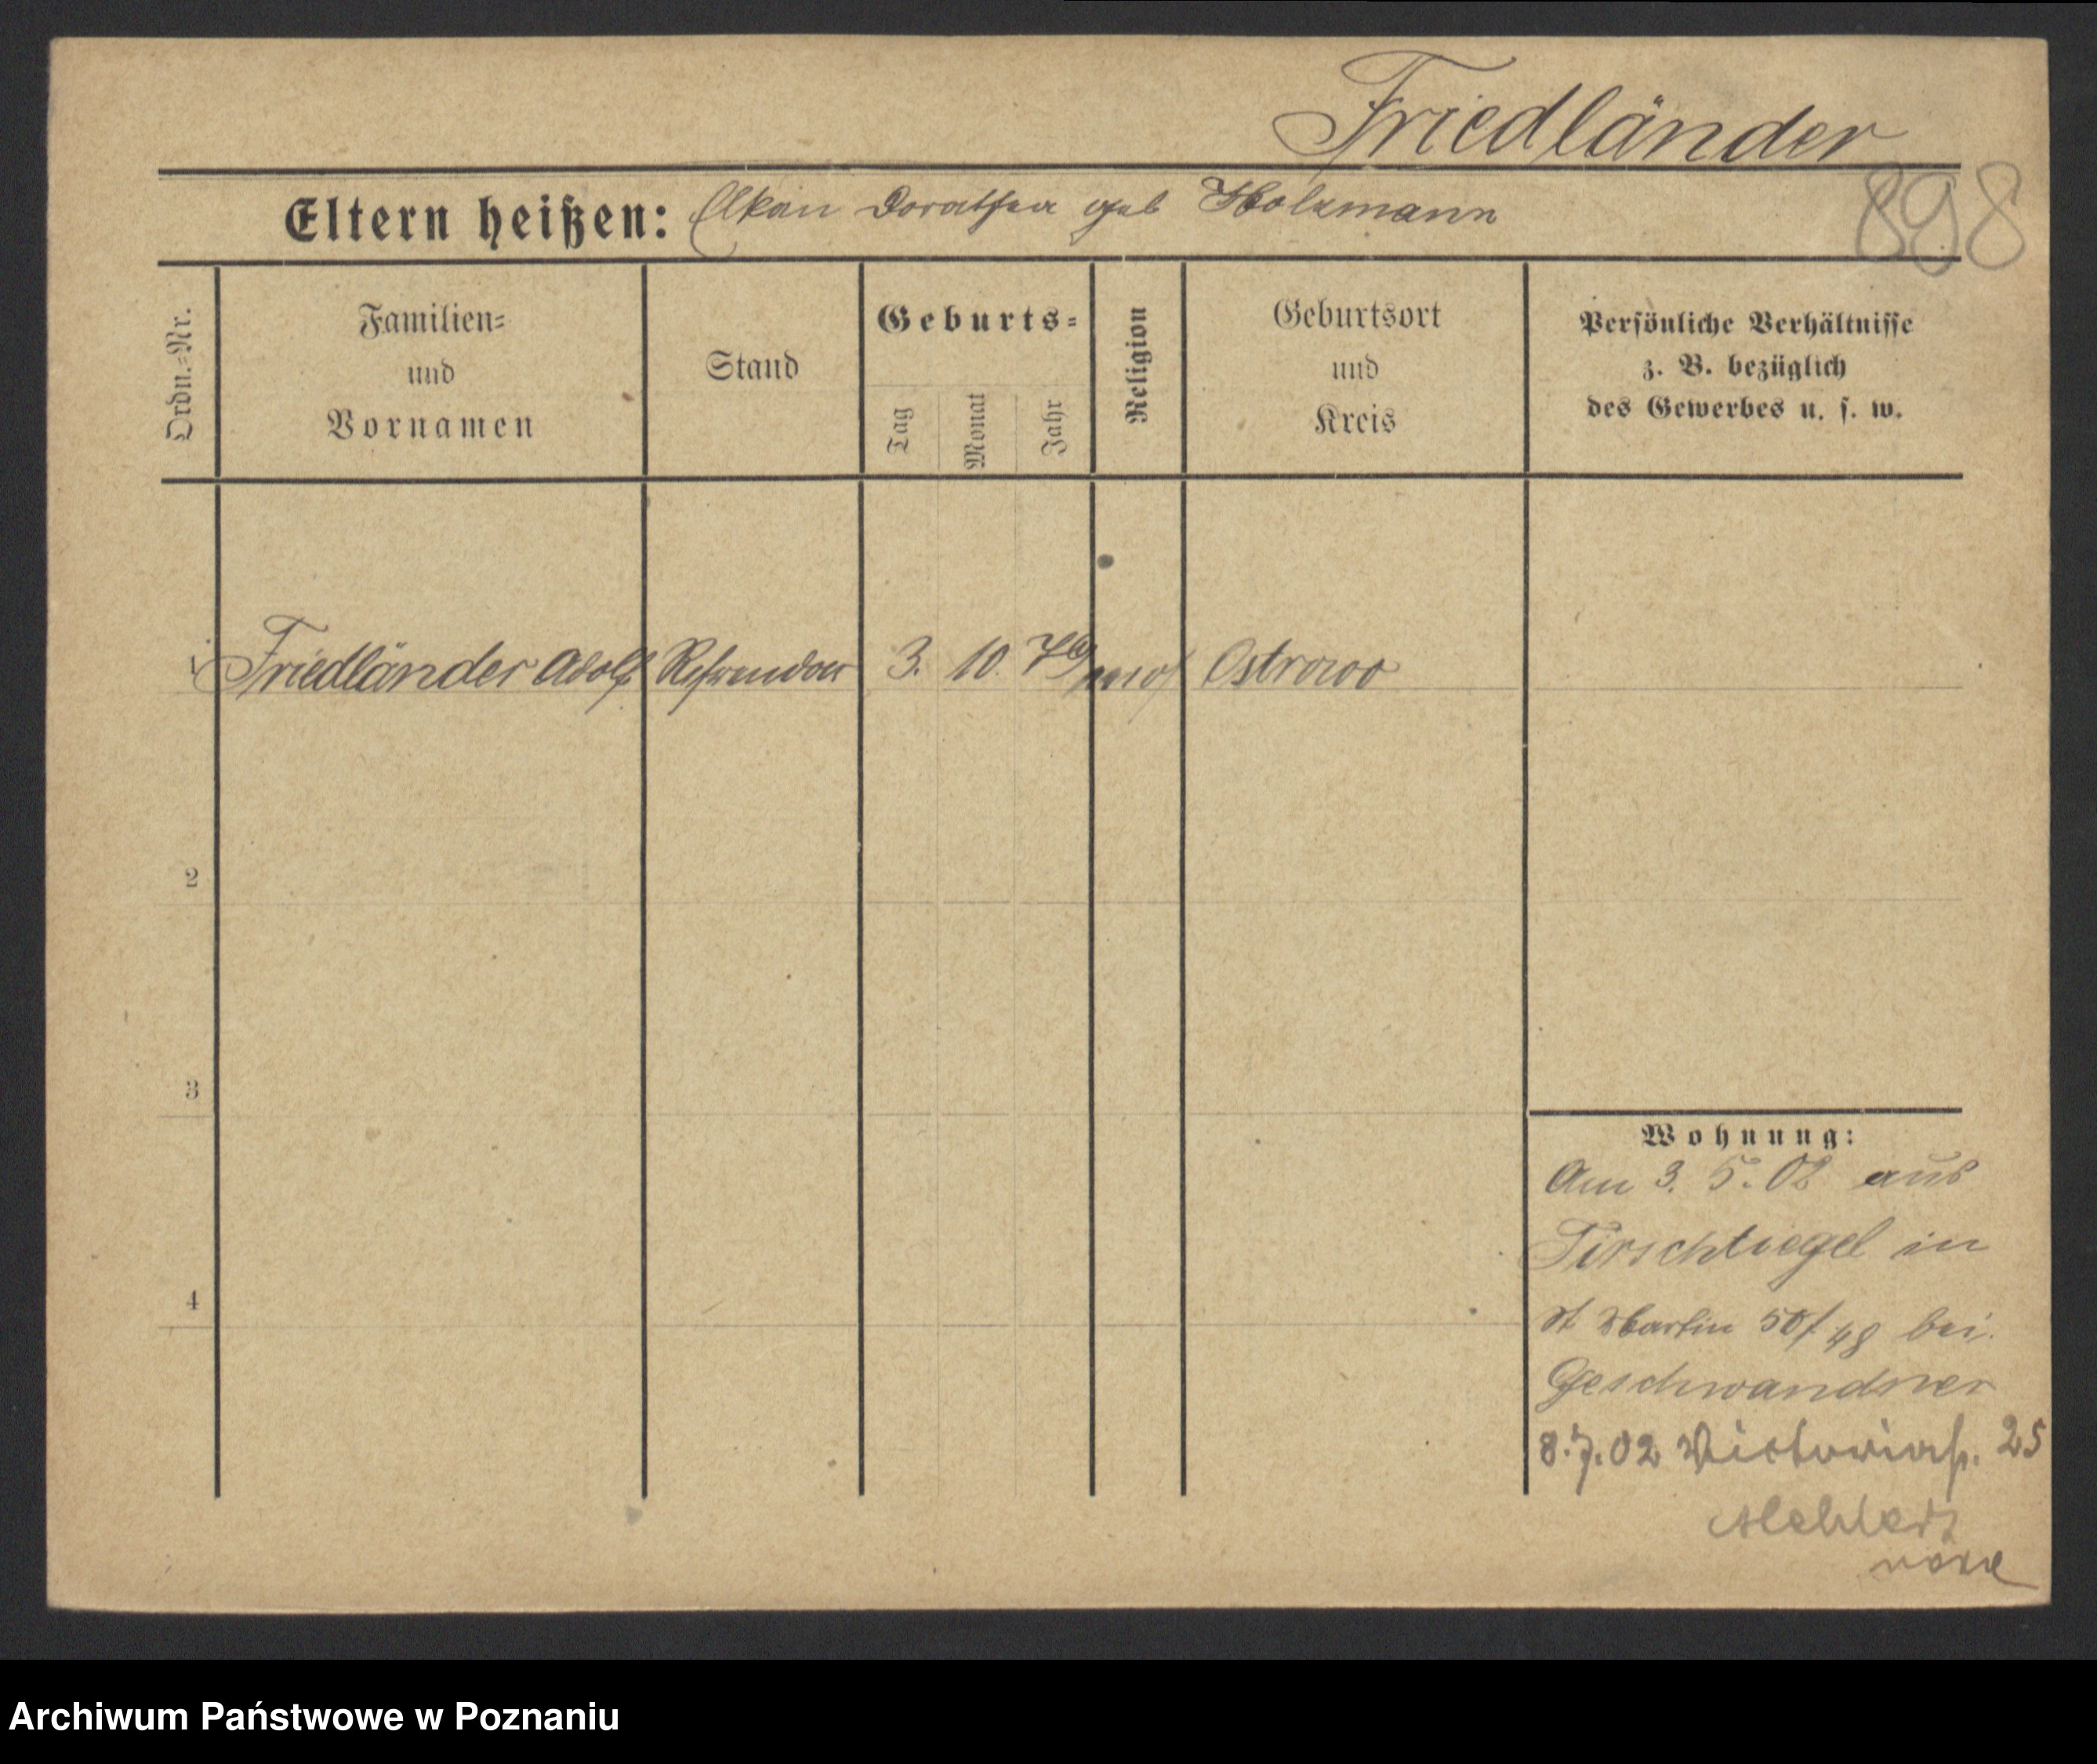 Friedländer
898
Eltern heißen: Elkan Dorothea geb Holzmann
Ordn.-Nr.
Familien-
und
Vornamen
Stand
Geburts-
Tag
Monat
Jahr
Religion
Geburtsort
und
Kreis
Persönliche Verhältnisse
z. B. bezüglich
des Gewerbes u. s. w.
1 Friedländer Adolf Referendar 3. 10. 76 mos Ostrowo
2
3
4
Wohnung:
Am 3. 5. 02 aus
Tirschtiegel in
St Martin 50/48 bei
Geschwandner
8.7.02 Victoriast. 25
Archiwum Państwowe w Poznaniu